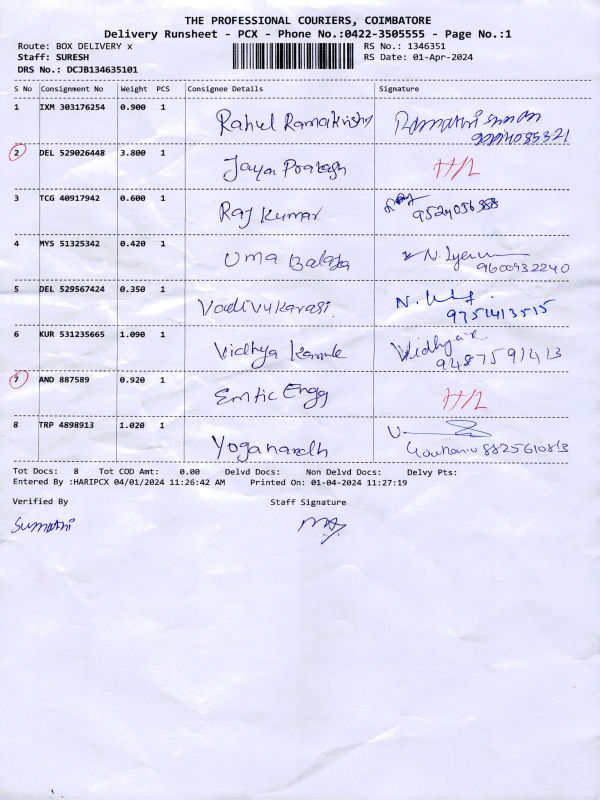 THE PROFESSIONAL COURIERS, COIMBATORE
Delivery Runsheet - PCX - Phone No.:0422-3505555 - Page No.:1
Route: BOX DELIVERY x RS No.: 1346351
Staff: SURESH RS Date: 01-Apr-2024
DRS No.: DCJB134635101
S No Consignment No Weight PCS Consignee Details Signature
1 IXM 303176254 0.900 1 Rahul Ramakrishy
2 DEL 529026448 3.800 1 Jaya Prakash H/L
3 TCG 40917942 0.600 1 Raj Kumar 9524056388
4 MYS 51325342 0.420 1 Uma Balaja N. Iyer
9600932240
5 DEL 529567424 0.350 1 Vadivukarasi
9751413515
6 KUR 531235665 1.090 1 Vidhya Vidhya
9487591413
7 AND 887589 0.920 1 Emtic Engg H/L
8 TRP 4898913 1.020 1 Yoganandh 8825610813
Tot Docs: 8 Tot COD Amt: 0.00 Delvd Docs: Non Delvd Docs: Delvy Pts:
Entered By :HARIPCX 04/01/2024 11:26:42 AM Printed On: 01-04-2024 11:27:19
Verified By Staff Signature
Sumathi